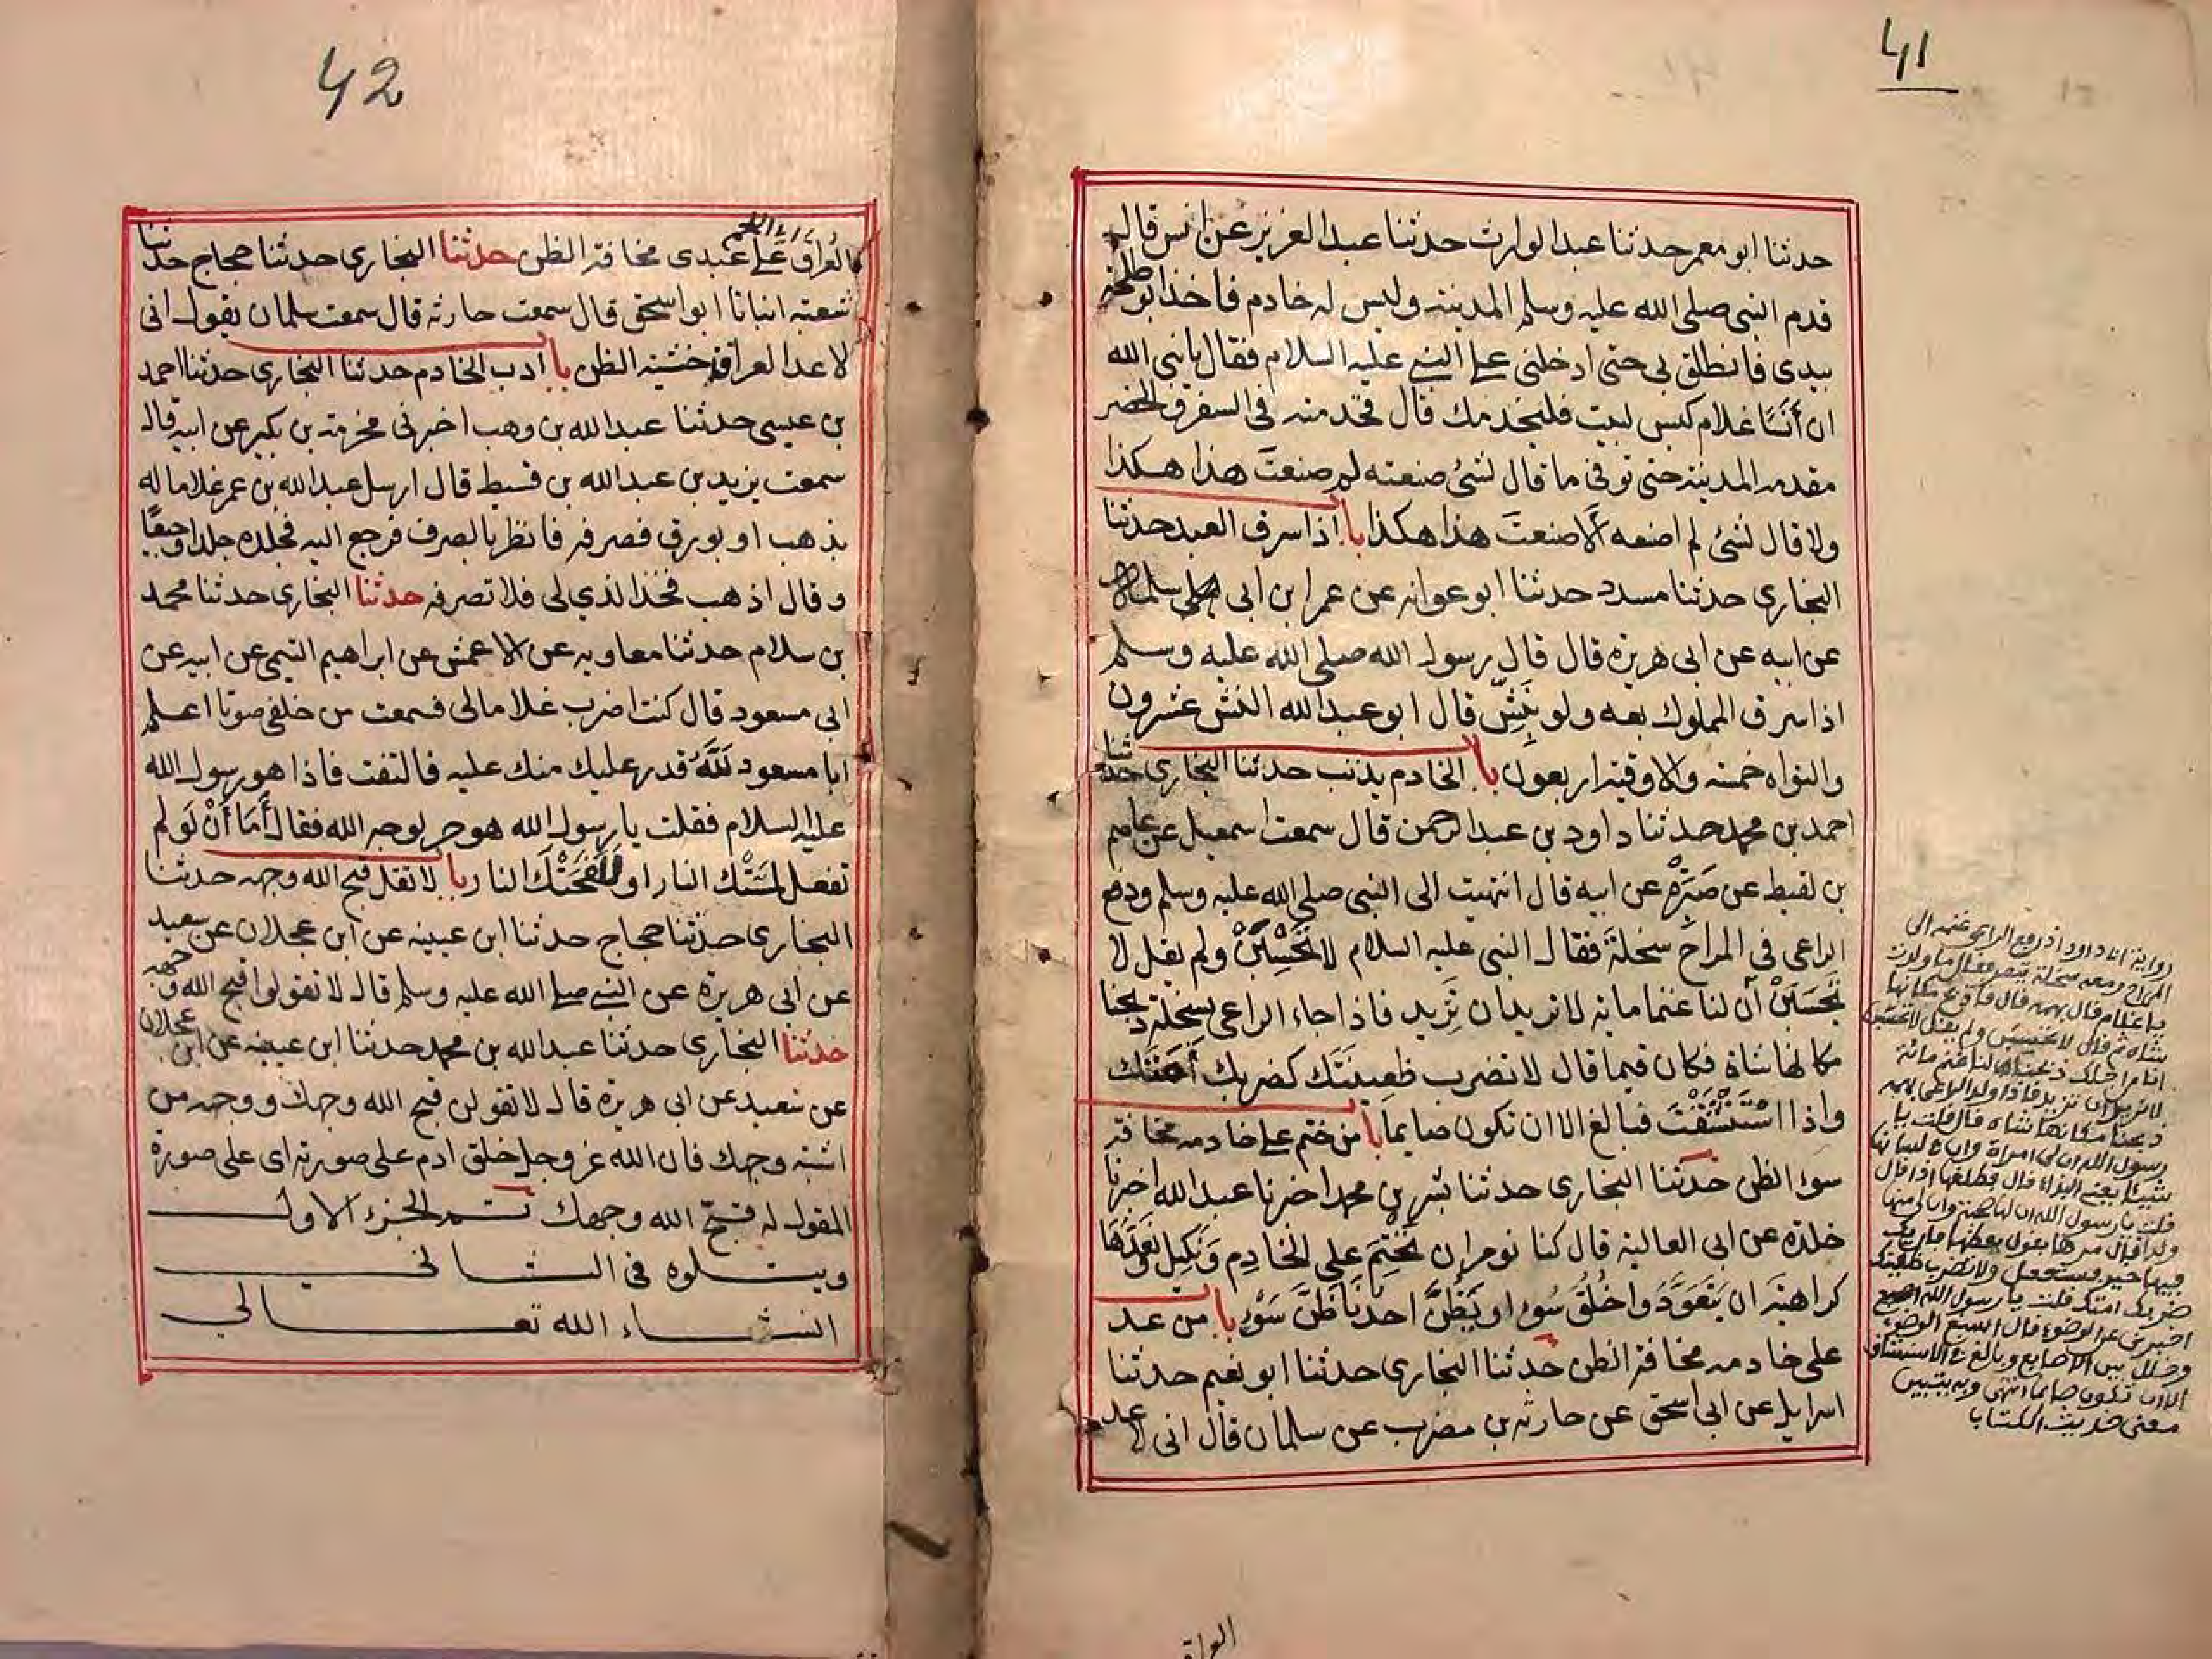 41
حدثنا ابو معمر حدثنا عبد الوارث حدثنا عبد العزيز عن انس قال
قدم النبى صلى الله عليه وسلم المدينة وليس له خادم فاخذ ابو طلحة
بيدى فانطلق بى حتى ادخلنى على النبى عليه السلام فقال يا نبى الله
ان أَنَسًا غلام كيس لبيب فليخدمك قال فخدمته فى السفر والحضر
مقدمه المدينة حتى توفى ما قال لشئ صنعته لم صنعتَ هذا هكذا
ولا قال لشئ لم اصنعه ألا صنعتَ هذا هكذا با اذا سرق العبد حدثنا
البخارى حدثنا مسدد حدثنا ابو عوانه عن عمر ابن ابى سلمة
عن ابيه عن ابى هريرة قال قال رسول الله صلى الله عليه وسلم
اذا سرق المملوك بعه ولو بِنَشٍّ قال ابو عبد الله النش عشرون
والنواه خمسة والاوقية اربعون با الخادم يذنب حدثنا البخارى حدثنا
احمد بن محمد حدثنا داود بن عبد الرحمن قال سمعت اسمعيل عن عاصم
بن لقيط عن صَبَرَةْ عن ابيه قال انتهيت الى النبى صلى الله عليه وسلم ودفع
الراعى فى المراح سخلة فقال النبى عليه السلام لا تَحْسِبَنَّ ولم يقل لا
تَحْسَبَنَّ أن لنا غنما ماية لا نريد ان تَزِيد فاذا جاء الراعى بسخلة ذبحنا
مكانها شاة فكان فيما قال لا تضرب ظعِينَتَك كضربك أَمَتَك
واذا اسْتَنْشَقْتَ فبالغ الا ان تكون صايما با من ختم على خادمه مخافة
سوء الظن حدثنا البخارى حدثنا بشر بن محمد اخبرنا عبد الله اخبرنا
خلدة عن ابى العالية قال كنا نومر ان نَخْتِمَ على الخادِم وَنَكِيل ونَعُدَّهَا
كراهية ان يَتَعَوَّدُوا خُلُقَ سُوء او يَظُنَّ احدنا ظَنَّ سَوْءٍ با من عد
على خادمه مخافة الظن حدثنا البخارى حدثنا ابو نعيم حدثنا
اسرايل عن ابى اسحق عن حارثه بن مضرب عن سلمان قال انى لاعد
العراق
رواية ابا داود اذ رفع الراعى غنمه الى
المراح ومعه سخلة تيعر فقال ما ولدت
يا غلام قال بهمة قال فاذبح مكانها
شاة ثم قال لا تحسِبن ولم يقل لا تحسَبن
انا من اجلك ذبحناها لنا غنم مائة
لا نريد ان تزيد فاذا ولد الراعى بهمة
ذبحنا مكانها شاة قال قلت يا
رسول الله ان لى امراة وان فى لسانها
شيئا يعنى البذاء قال فطلقها اذا قال
قلت يا رسول الله ان لها صحبة وان لى منها
ولدا قال فمرها يقول عظها فان يك
فيها خير فستفعل ولا تضرب ظعينتك
ضربك امتك فقلت يا رسول الله
اخبرنى عن الوضوء قال اسبغ الوضوء
وخلل بين الاصابع وبالغ فى الاستنشاق
الا ان تكون صايما انتهى وبه يتبين
معنى حديث الكتاب
42
العراق على عبدى مخافة الظن حدثنا البخارى حدثنا حجاج حدثنا
شعبة انبانا ابو اسحق قال سمعت حارثة قال سمعت سلمان يقول انى
لاعد العراق خشية الظن با ادب الخادم حدثنا البخارى حدثنا احمد
بن عيسى حدثنا عبد الله بن وهب اخبرنى مخرمة بن بكير عن ابيه قال
سمعت يزيد بن عبد الله بن قسيط قال ارسل عبد الله بن عمر غلاما له
بذهب او بورق فصرفه فانظر بالصرف فرجع اليه فجلده جلدا وجيعًا
وقال اذهب فخذ الذي لى فلا تصرفه حدثنا البخارى حدثنا محمد
بن سلام حدثنا معاويه عن الاعمش عن ابراهيم التيمى عن ابيه عن
ابى مسعود قال كنت اضرب غلاما لى فسمعت من خلفى صوتا اعلم
ابا مسعود لَلَّهُ قدر عليك منك عليه فالتفت فاذا هو رسول الله
عليه السلام فقلت يا رسول الله هو حر لوجه الله فقال أَمَا أَنْ لَو لم
تفعل لمستْك النار او لَلَفَحَتْكَ النار با لا تقل قبح الله وجهه حدثنا
البخارى حدثنا حجاج حدثنا ابن عيينه عن ابن عجلان عن سعيد
عن ابى هريرة عن النبى صلى الله عليه وسلم قال لا تقولوا قبح الله وجهه
حدثنا البخارى حدثنا عبد الله بن محمد حدثنا ابن عيينه عن ابن عجلان
عن سعيد عن ابى هريرة قال لا تقولن قبح الله وجهك ووجه من
اشبه وجهك فان الله عز وجل خلق ادم على صورته اى على صورة
المقول له قبح الله وجهك تم الجزء الاول
ويتلوه فى الثانى
انشاء الله تعالى